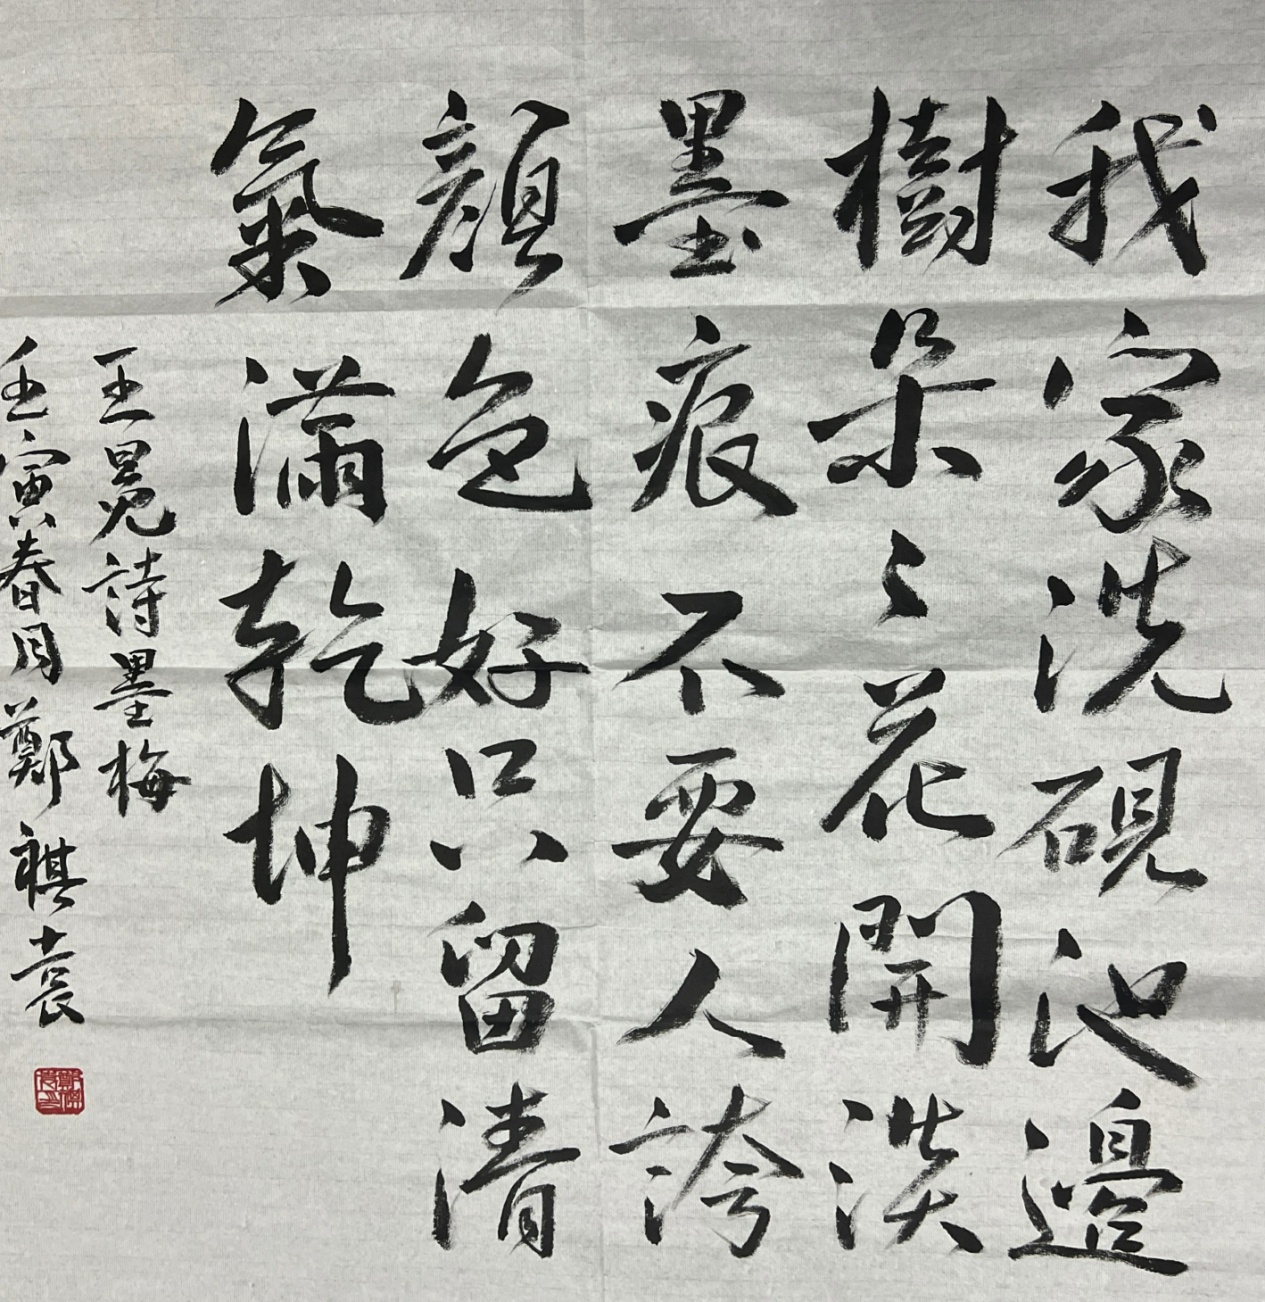 我家洗硯池邊
樹朵〻花開淡
墨痕不要人誇
顏色好只留清
氣滿乾坤
王冕詩墨梅
壬寅春月鄭祺袁